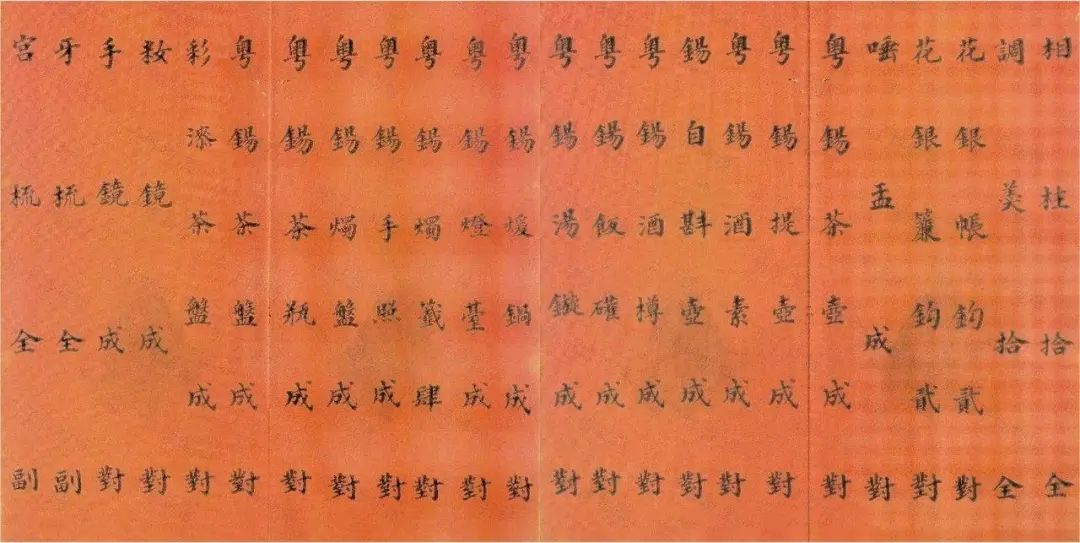 相杜拾全
調羹拾全
花銀帳鈎貳對
花銀簾鈎貳對
唾盂成對
粵錫茶壺成對
粵錫提壺成對
粵錫酒素成對
錫自斟壺成對
粵錫酒樽成對
粵錫飯礶成對
粵錫湯鏇成對
粵錫煖鍋成對
粵錫燈臺成對
粵錫燭籤肆對
粵錫手照成對
粵錫燭盤成對
粵錫茶瓶成對
粵錫茶盤成對
彩漆茶盤成對
妝鏡成對
手鏡成對
牙梳全副
宮梳全副